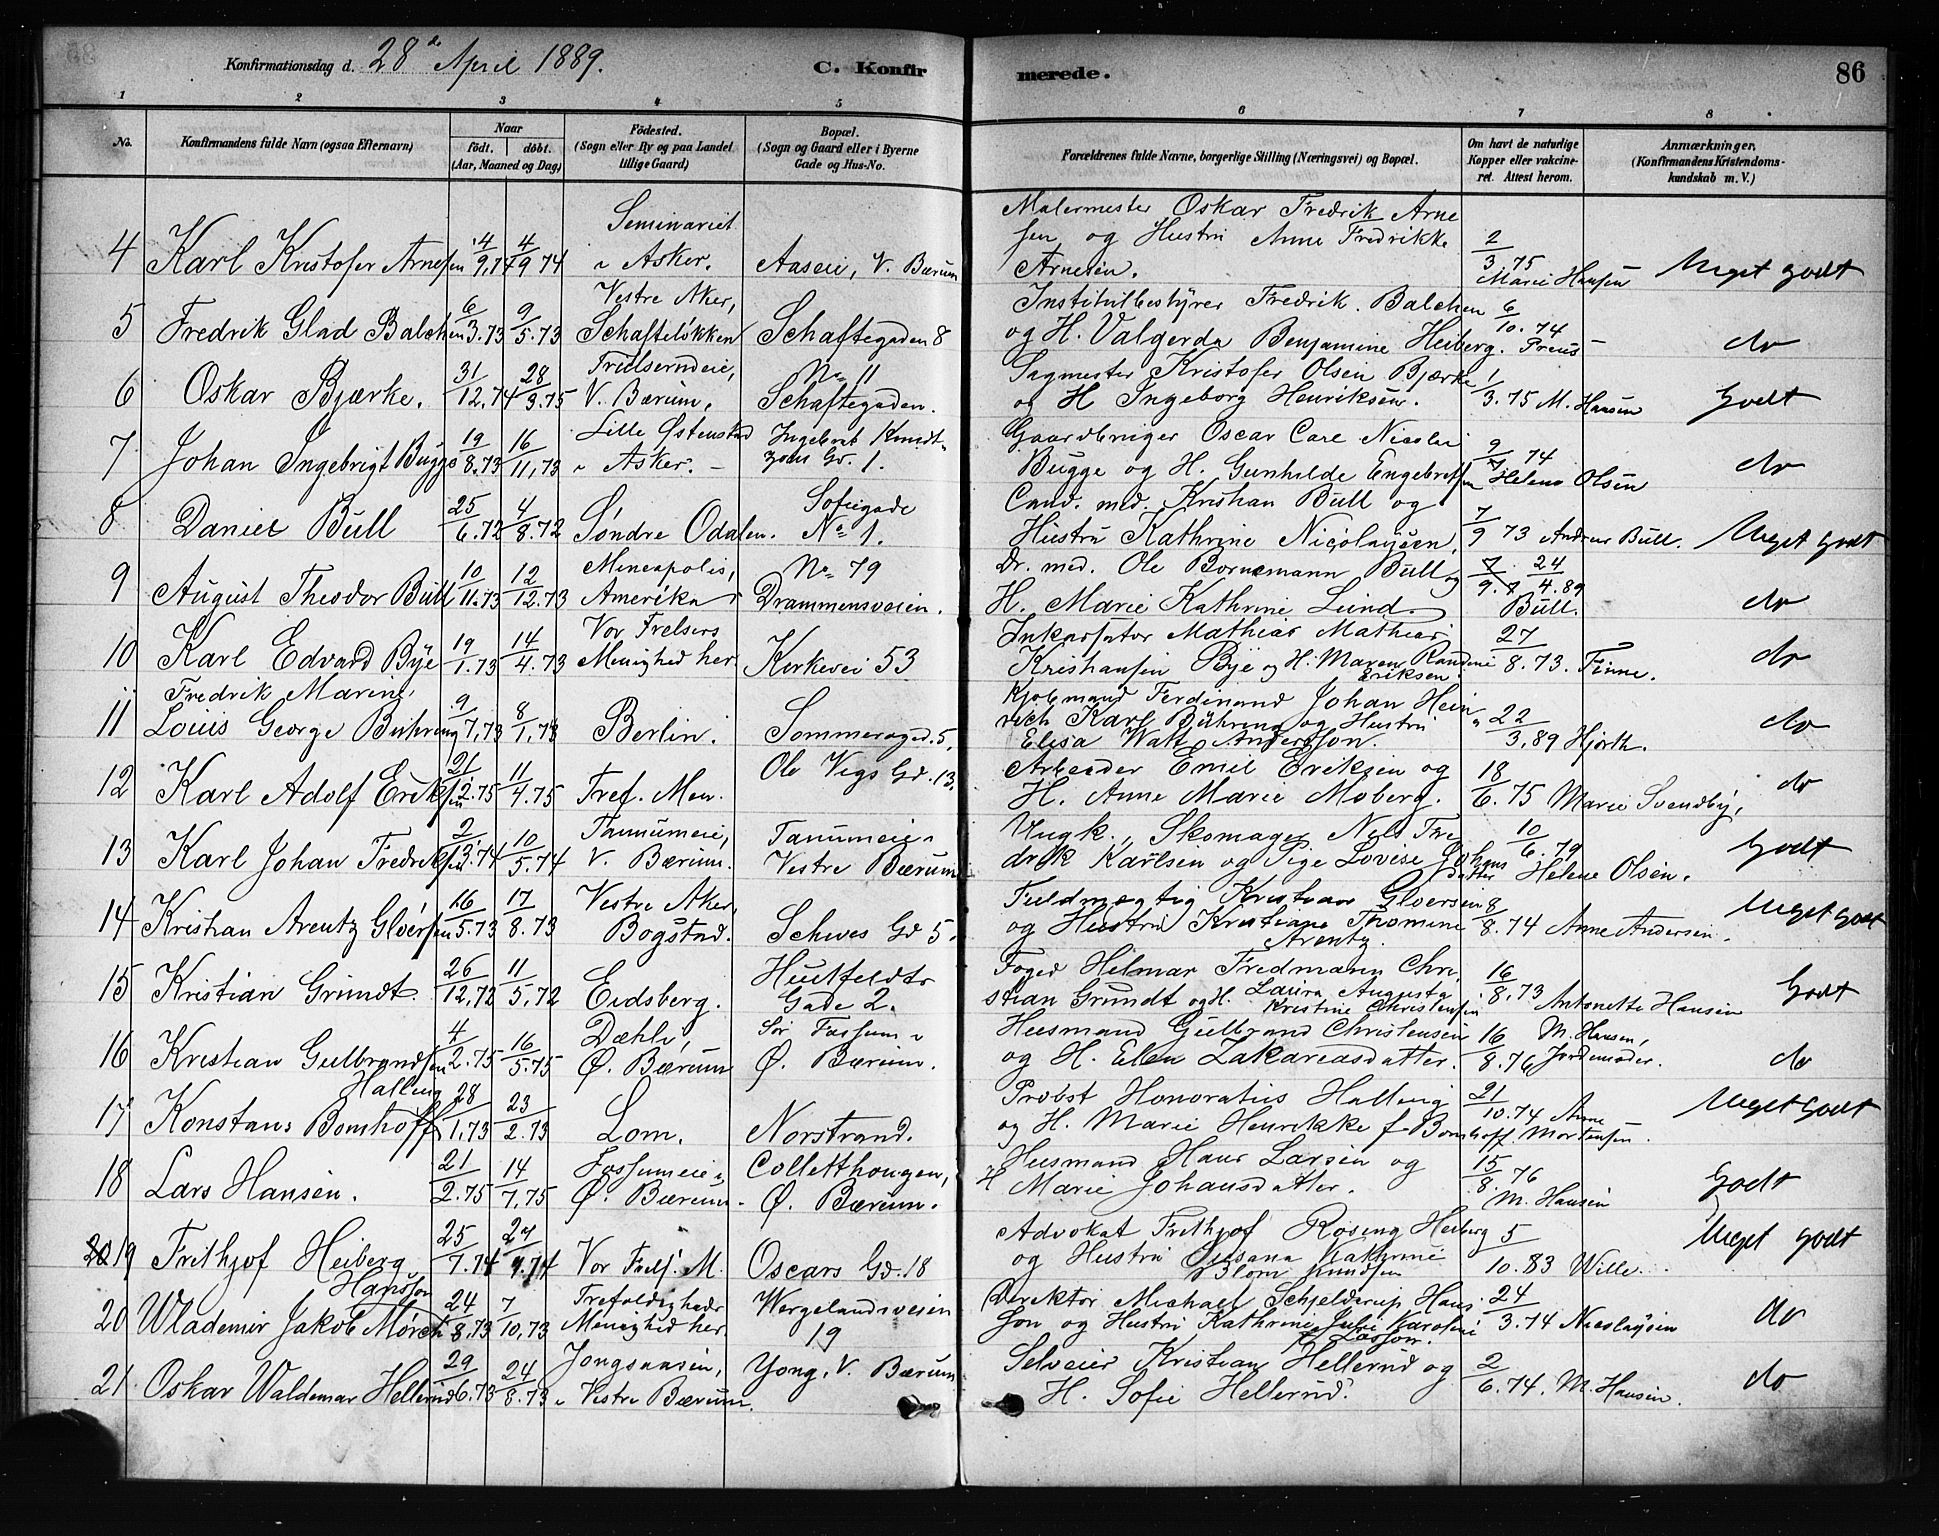 Konfirmationsdag d. 28de April 1889.
C. Konfir merede. 86
1 2 3 4 5 6 7 8
No. Konfirmandens fulde Navn (ogsaa Efternavn) Naar født. døbt. (Aar, Maaned og Dag) Fødested. (Sogn eller By og paa Landet tillige Gaard) Bopæl. (Sogn og Gaard eller i Byerne Gade og Hus-No. Forældrenes fulde Navne, borgerlige Stilling (Næringsvei) og Bopæl. Om havt de naturlige Kopper eller vakcineret. Attest herom. Anmærkninger, (Konfirmandens Kristendomskundskab m. V.)
4 Karl Kristofer Arnesen 4/9.74 4/9 74 Seminariet i Asker. Aaseie, V. Bærum Malermester Oskar Fredrik Arnesen og Hustru Anne Fredrikke Arnesen. 2/3.75 Marie Hansen Meget godt
5 Fredrik Glad Balchen 6/3.73 9/5.73 Vestre Aker, Schafteløkken Schaftegaden 8 Institutbestyrer Fredrik Balchen og H. Valgerda Benjamine Heiberg. 6/10.74 Preus do
6 Oskar Bjærke. 31/12.74 28/3.75 V. Bærum. No 11 Schaftegaden. Sagmester Kristofer Olsen Bjærke og H Ingeborg Henriksen. 1/3.75 M. Hansen Godt
7 Johan Ingebrigt Bugge 19/8.73 16/11.73 Lille Østenstad i Asker. Ingebret Knudtzons Gd. 1. Gaardbruger Oscar Care Nicolai Bugge og H. Gunhilde Engebretsen 9/7 74 Helene Olsen do
8 Daniel Bull 25/6.72 4/8.72 Søndre Odalen. Sofiegade No 1. Cand. med. Kristian Bull og Hustru Kathrine Nicolaysen, 7/9 73 Andrea Bull. Meget godt
9 August Theodor Bull 10/11.73 12/12.73 Mineapolis, Amerika No 79 Drammensveien. Dr. med. Ole Bornemann Bull og H. Marie Kathrine Lund. 24/4.89 Bull. do
10 Karl Edvard Bye 19/1.73 14/4.73 Vor Frelsers Menighed her Kirkevei 53 Inkassator Mathias Mathias Kristiansen Bye og H. Maren Randine Eriksen. 27/8.73. Finne. do
11 Fredrik Marius Louis George Buhring 9/7.73 8/1.78 Berlin. Sommerogd. 5, Kjøbmand Ferdinand Johan Heinrich Karl Bühring og Hustru Elisa Watt Andersson. 22/3.89 Hjorth. do
12 Karl Adolf Eriksen 21/2.75 11/4.75 Fref. Men. Ole Vigs Gd. 13. Arbeider Emil Eriksen og H. Anne Marie Moberg. 18/6.75 Marie Svendby, do
13 Karl Johan Fredriksen 2/3.74 10/5.74 Tanumeie, V. Bærum. Tanumeie Vestre Bærum Ungk., Skomager Nels Fredrik Karlsen og Pige Lovise Johansdatter 10/6.79 Helene Olsen. Godt
14 Kristian Arentz Gløersen 16/5.73 17/8.73 Vestre Aker, Bogstad. Schives Gd 5. Fuldmægtig Kristian Gloersen og Hustru Kristiane Thomine Arentz. 8/8.74 Anne Andersen. Meget godt
15 Kristian Grundt. 26/12.72 11/5.72 Eidsberg. Huitfeldts Gade 2. Foged Hilmar Fredmann Christian Grundt og H. Laura Augusta Kristine Christensen 16/8.73 Antonette Hansen Godt
16 Kristian Gulbrandsen 4/2.75 16/5.75 Dæhli, Ø. Bærum Sør Fossum Ø. Bærum. Husmand Gulbrand Christensen og H. Elen Zakariasdatter. 16/8.76 M. Hansen, Jordemoder. do
17 Konstans Bomhoff Halling 28/1.73 23/2.73 Lom. Norstrand. Probst Honoratius Halling og H. Marie Henrikke f Bomhoff 21/10.74 Anne Mortensen. Meget godt
18 Lars Hansen. 21/2.75 14/7.75 Fossumeie Ø. Bærum. Colletthougen, Ø. Bærum. Husmand Hans Larsen og H Marie Johansdatter. 15/8.76 M. Hansen Godt
19 Frithjof Heiberg 25/7.74 27/9.74 Vor Frels. M. Oscars Gd. 18 Advokat Frithjof Rosing Heiberg og Hustru Susana Kathrine Blom Knudsen 5/10.83 Wille. Meget godt
20 Wlademir Jakob Mørch Hansson 24/8.73 7/10.73 Trefoldigheds Menighed her Wergelandsveien 19 Direktør Michael Schjelderup Hansson og Hustru Kathrine Julie Karoline 24/3.74 Nicolaysen do
21. Oskar Waldemar Hellerud 29/6.73 24/8.73 Jongsaasen, i Vestre Bærum. Yong, V. Bærum Selveier Kristian Hellerud og H. Sofie Hellerud. 2/6.74. M. Hansen. do